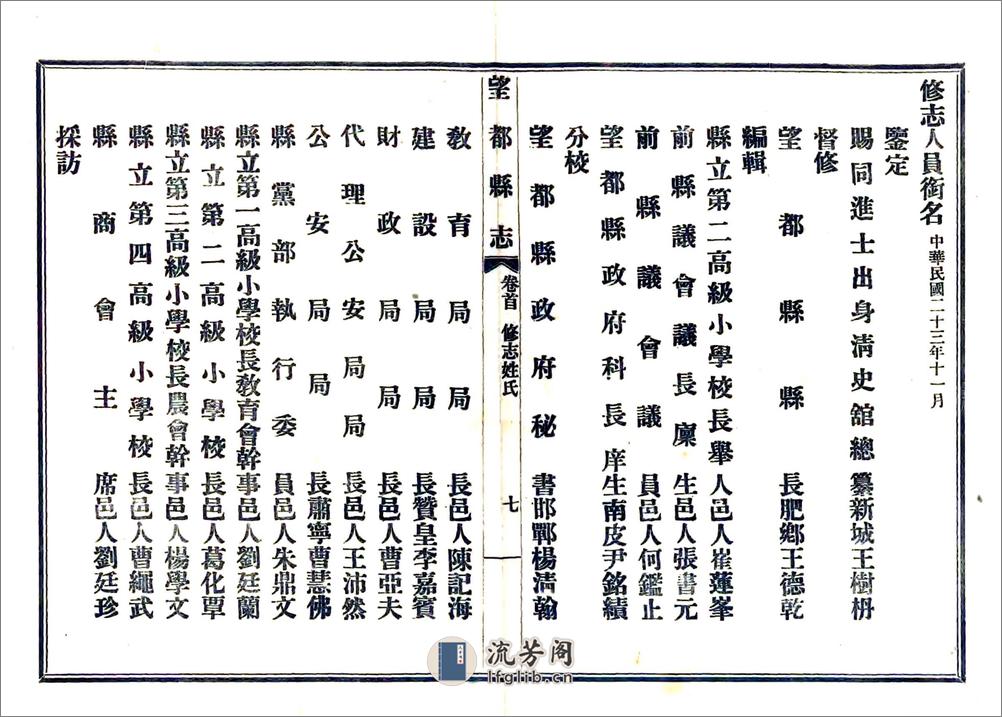 修志人員銜名 中華民國二十三年十一月
鑒定
賜同進士出身清史館總纂新城王樹枏
督修
望都縣縣長肥鄉王德乾
編輯
縣立第二高級小學校長舉人邑人崔蓮峯
前縣議會議長廩生邑人張書元
前縣議會議員邑人何鑑止
望都縣政府科長庠生南皮尹銘績
分校
望都縣政府秘書邯鄲楊清翰
望都縣志 卷首 修志姓氏 七
教育局局長邑人陳記海
建設局局長贊皇李嘉賓
財政局局長邑人曹亞夫
代理公安局局長邑人王沛然
公安局局長肅寧曹慧佛
縣黨部執行委員邑人朱鼎文
縣立第一高級小學校長教育會幹事邑人劉廷蘭
縣立第二高級小學校長邑人葛化覃
縣立第三高級小學校長農會幹事邑人楊學文
縣立第四高級小學校長邑人曹繩武
縣商會主席邑人劉廷珍
採訪
流芳阁
lfglib.cn